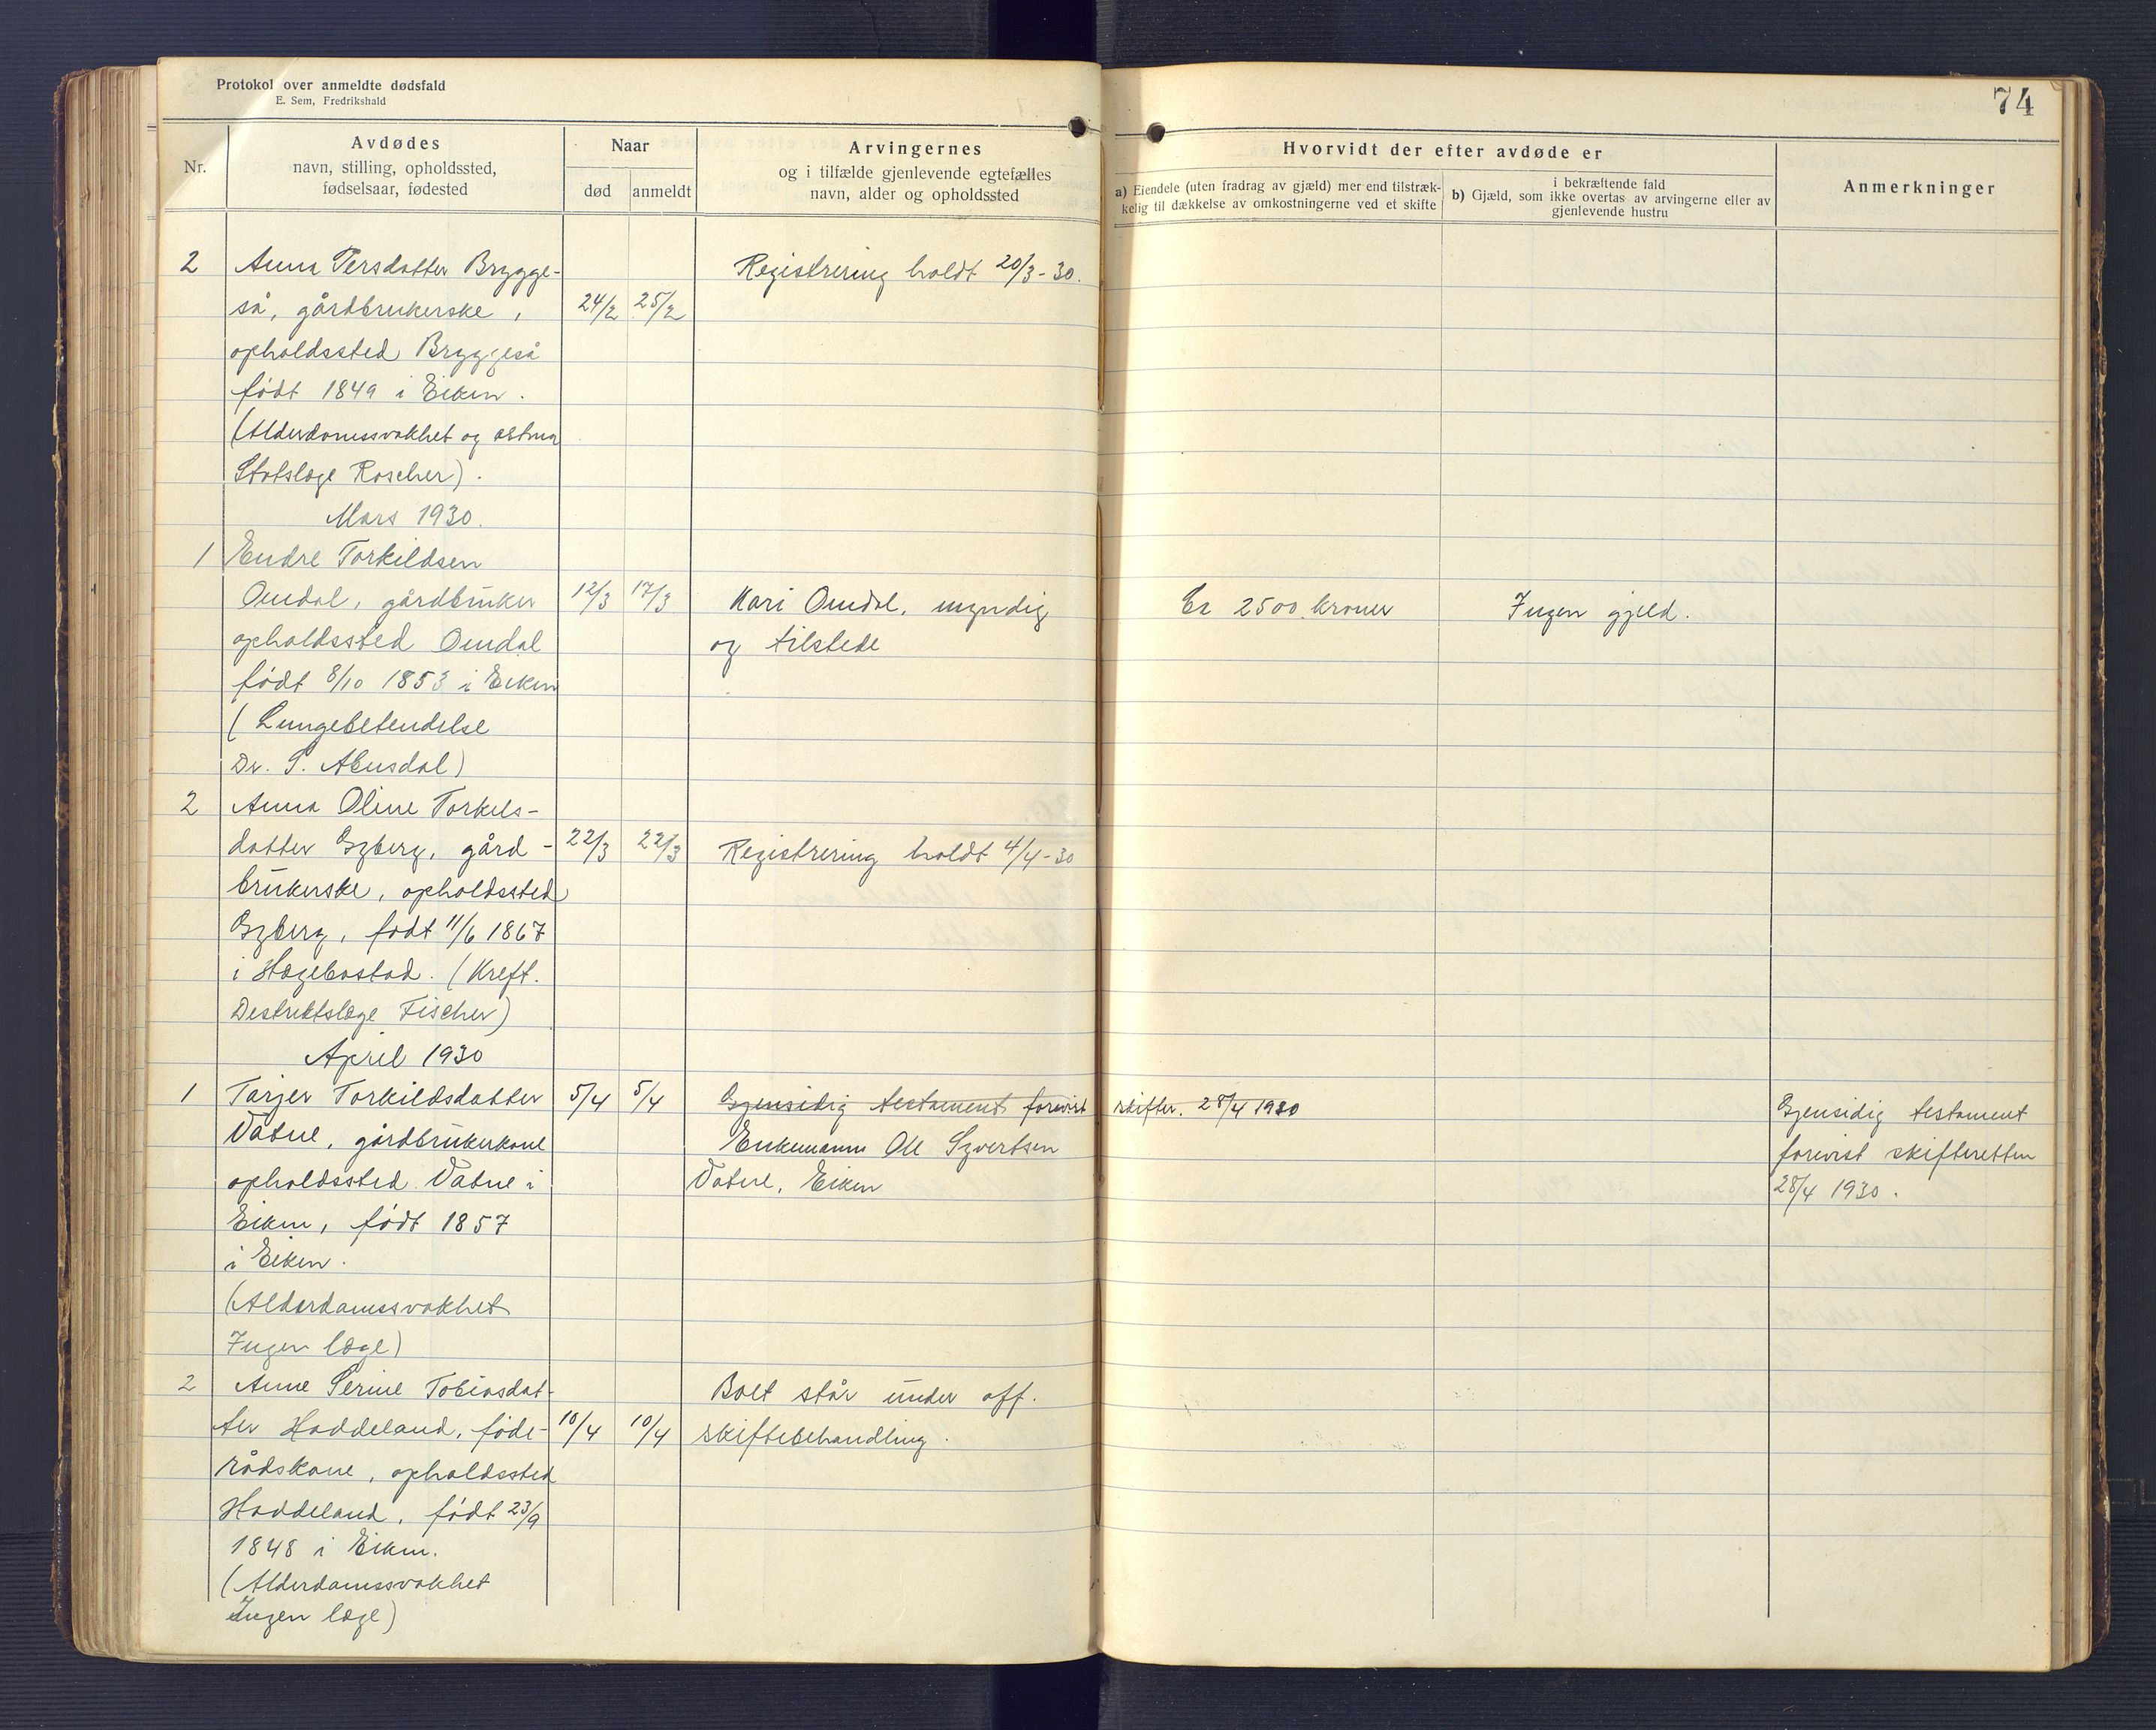 Protokol over anmeldte dødsfald
E. Sem, Fredrikshald
74
Nr.
Avdødes
navn, stilling, opholdssted,
fødselsaar, fødested
Naar
død
anmeldt
Arvingernes
og i tilfælde gjenlevende egtefælles
navn, alder og opholdssted
Hvorvidt der efter avdøde er
a) Eiendele (uten fradrag av gjæld) mer end tilstræk-
kelig til dækkelse av omkostningerne ved et skifte
i bekræftende fald
b) Gjæld, som ikke overtas av arvingerne eller av
gjenlevende hustru
Anmerkninger
2 Anna Persdatter Brygge- Registrering holdt 20/3-30.
så, gårdbrukerske, 24/2 25/2
opholdssted Bryggeså
født 1849 i Eiken.
(Alderdomssvakhet og astma
Statslæge Roscher).
Mars 1930.
1 Endre Torkildsen
Omdal, gårdbruker 12/3 17/3 Kari Omdal, myndig Ca 2500 kroner Ingen gjeld.
opholdssted Omdal og tilstede
født 8/10 1853 i Eiken
(Lungebetendelse
Dr. S. Abusdal)
2 Anna Oline Torkels-
datter Gyberg, gård- 22/3 22/3 Registrering holdt 4/4-30
brukerske, opholdssted
Gyberg, født 11/6 1867
i Hægebostad. (Kreft.
Destriktslæge Fischer)
April 1930
1 Tarjer Torkildsdatter 5/4 5/4 Gjensidig testament forevist skifter. 28/4 1930 Gjensidig testament
Vatne, gårdbrukerkone Enkemann Ole Syvertsen forevist skifteretten
opholdssted Vatne i Vatne, Eiken 28/4 1930.
Eiken, født 1857
i Eiken.
(Alderdamssvakhet
Ingen læge)
2 Anne Serine Tobiasdat- Boet står under off.
ter Haddeland, føde- 10/4 10/4 skiftebehandling.
rådskone, opholdssted
Haddeland, født 23/9
1848 i Eiken.
(Alderdamssvakhet
Ingen læge)